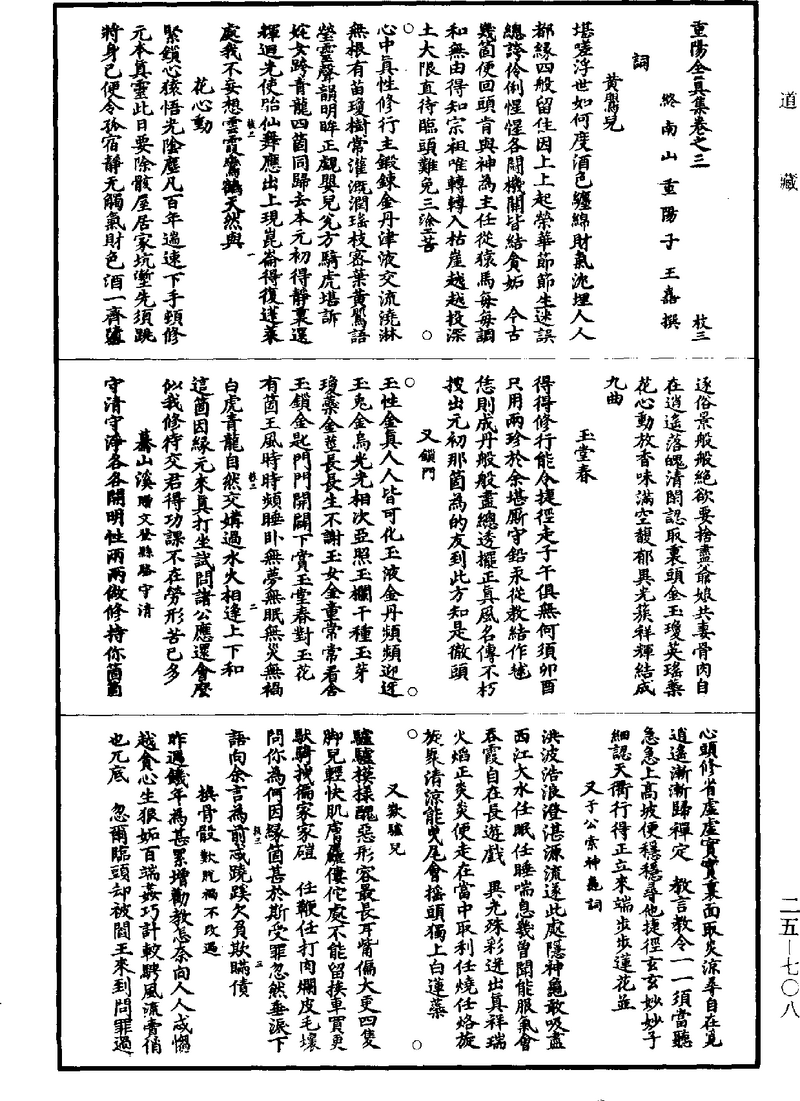 道藏
重陽全真集卷之三
枝三
終南山重陽子王嚞撰
詞
黃鸎兒
堪嗟浮世如何度酒色纏綿財氣沈埋人人
都緣四般留住因上上起榮華節節生迷誤
總誇伶俐惺惺各鬬機關皆結貪妬　今古
幾箇便回頭肯與神為主任從猿馬每每調
和無由得知宗祖唯轉轉入枯崖越越投深
土大限直待臨頭難免三塗苦
○
心中真性修行主鍛鍊金丹津液交流澆淋
無根有苗瓊樹常灌溉潤瑤枝密葉黃鸎語
瑩靈聲韻明眸正覷嬰兒兊方騎虎堪訴
姹女跨青龍四箇同歸去本元初得靜裏還
輝迴光使胎仙舞應出上現崑崙得復蓬萊
處我不妄想雲霞鸞鶴天然與
花心動
緊鎖心猿悟光陰塵凡百年遄速下手頸修
元本真靈此日要除骸屋居家坑塹先須跳
將身已便令孤宿靜无觸氣財色酒一齊
逐俗景般般絕欲要捨盡爺娘共妻骨肉自
在逍遙落魄清閑認取裏頭金玉瓊英瑤蘂
花心動放香味滿空馥郁異光簇祥輝結成
九曲
玉堂春
得得修行能令捷徑走子午俱無何須卯酉
只用兩珍於余堪廝守鉛汞從教結作毬
恁則成丹般般盡總透擺正真風名傳不朽
搜出元初那箇為的友到此方知是徹頭
又鎖門
○
玉性金真人人皆可化玉液金丹頻頻迎迓
玉兎金烏光光相次亞照玉欄干種玉芽
瓊藥金莖長長生不謝玉女金童常常看舍
玉鎖金匙門門開闢下賞玉堂春對玉花
有箇王風時時頻睡卧無夢無眠無災無禍
白虎青龍自然交媾過水火相逢上下和
這箇因緣元來真打坐試問諸公應還會麽
似我修待交君得功課不在勞形苦已多
驀山溪贈文登縣駱守清
守清守淨各各開明性兩兩做修持你箇箇
心頭修省虛虛實實裏面取炎涼尋自在覓
逍遙漸漸歸禪定　教言教令一一須當聽
急急上高坡便穩穩尋他捷徑玄玄妙妙子
細認天衢行得正立來端步步蓮花並
又于公索神龜詞
洪波浩浪澄湛源流逐此處隱神龜敢吸盡
西江大水任眠任睡喘息幾曾聞能服氣會
吞霞自在長遊戲　異光殊彩迸出真祥瑞
火熖正炎炎便走在當中取利任燒任烙旋
旋聚清涼能曳尾會搖頭獨上白蓮蘂
又歎驢兒
○
驢驢摸㨾醜惡形容最長耳觜偏大更四隻
脚兒輕快肌膚麤僂佗處不能留挨車買更
馱騎拽徧家家磑　任鞭任打肉爛皮毛壞
問你為何因緣箇甚於斯受罪忽然垂淚下
語向余言為前戒蹺蹊欠負欺瞞債
換骨骰歎貶禍不改過
昨過饑年為甚累增勸教怎奈向人人戒懶
越貪心生狠妬百端姦巧計較騁風流賣俏
也兀底　忽爾臨頭却被閻王來到問罪過
二五—七〇八